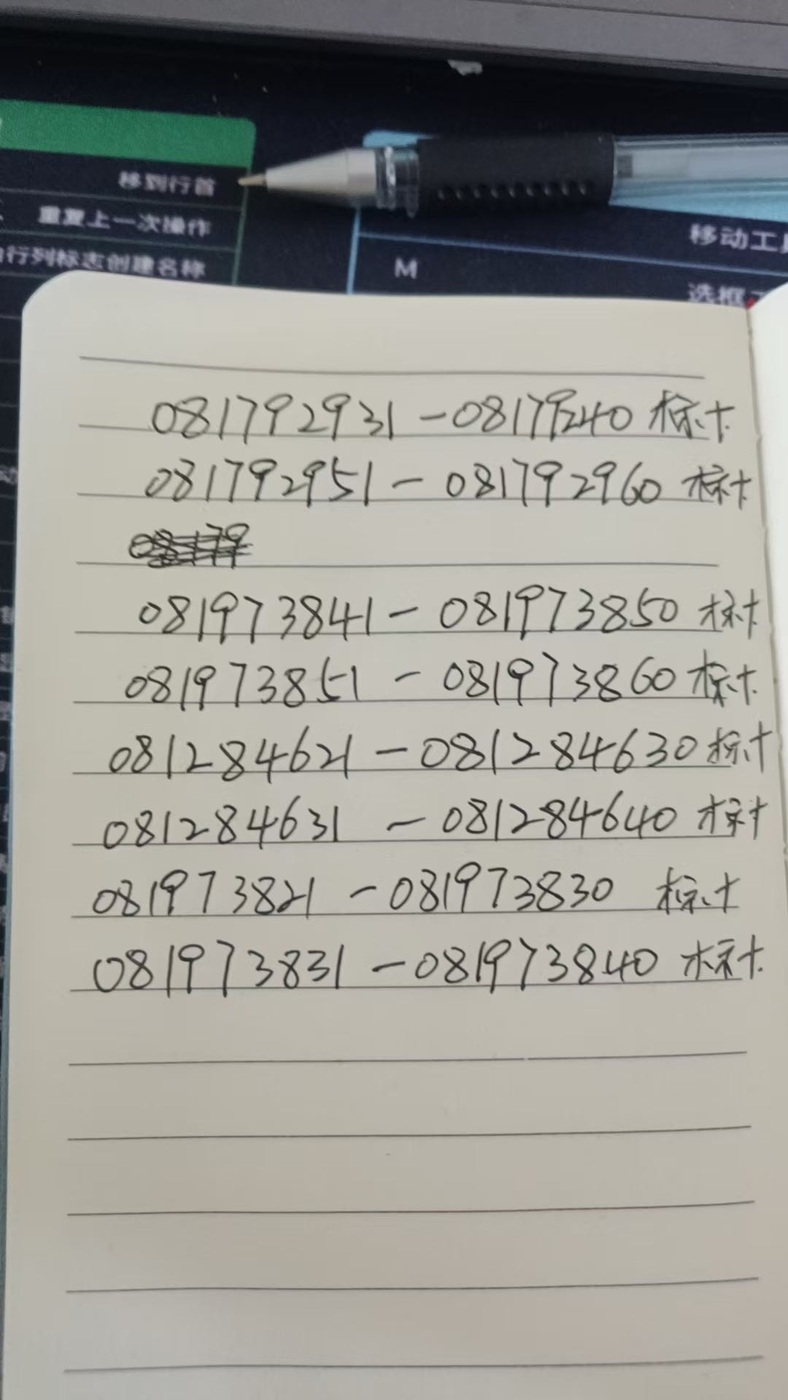 移到行首
重复上一次操作
行列标志创建名称
移动工具
M
选框
081792931-08179240 标卡
081792951-081792960 标卡
081973841-081973850 标卡
081973851-081973860 标卡
081284621-081284630 标卡
081284631-081284640 标卡
081973821-081973830 标卡
081973831-081973840 标卡